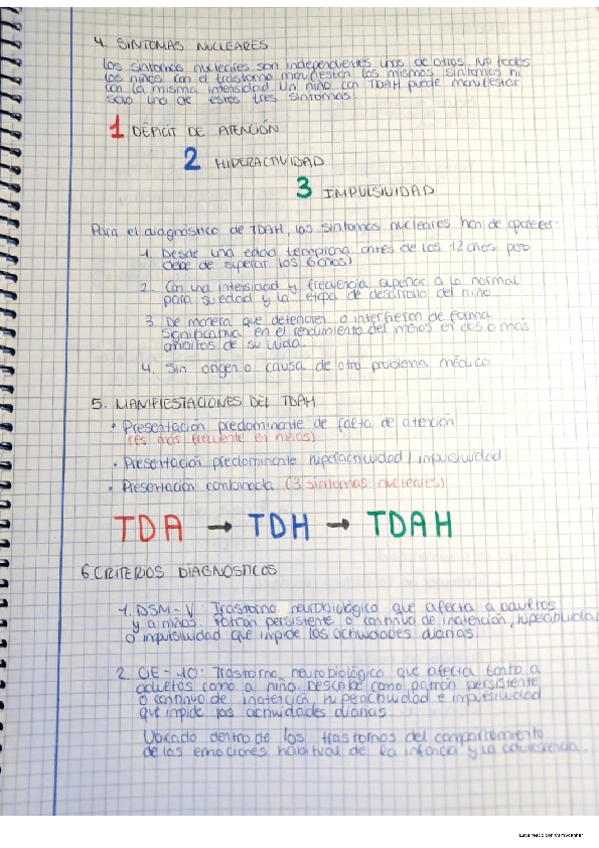 4. SINTOMAS NUCLEARES
Los sintomas nucleares son independientes unos de otros. No todos
los niños con el trastorno manifiestan los mismos sintomas ni
con la misma intensidad. Un niño con TDAH puede manifestar
solo uno de estos tres sintomas.
1 DÉFICIT DE ATENCIÓN
2 HIPERACTIVIDAD
3 IMPULSIVIDAD
Para el diagnóstico de TDAH, los sintomas nucleares han de aparecer:
1. Desde una edad temprana antes de los 12 años pero
debe de superar los 6 años)
2. Con una intensidad y frecuencia superior a la normal
para su edad y la etapa de desarrollo del niño.
3. De manera que deterioren o interfieren de forma
significativa en el rendimiento del menos en dos o más
ámbitos de su vida.
4. Sin origen o causa de otro problema médico
5. MANIFIESTACIONES DEL TDAH
• Presentación predominante de falta de atención
(es más frecuente en niñas)
• Presentación predominante hiperactividad / impulsividad
• Presentación combinada (3 sintomas nucleares)
TDA → TDH → TDAH
6. CRITERIOS DIAGNOSTICOS
1. DSM-V: Trastorno neurobiológico que afecta a adultos
y a niños. Patrón persistente o continuo de inatención, hiperactividad
o impulsividad que impide las actividades diarias.
2. CIE-10: Trastorno neurobiológico que afecta tanto a
adultos como a niño. Describe como patrón persistente
o continuo de inatención, hipeactividad e impulsividad
que impide las actividades diarias.
Ubicado dentro de los trastornos del comportamiento
de las emociones habitual de la infancia y la adolescencia.